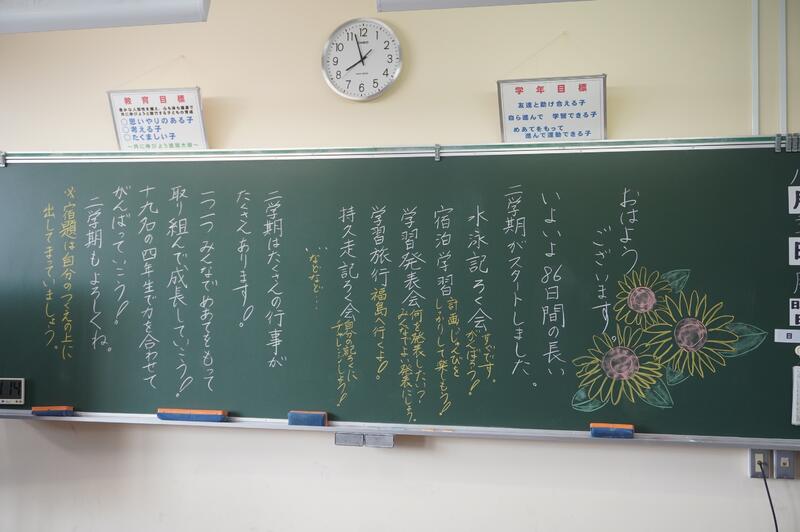 教育目標
○思いやりのある子
○考える子
○たくましい子
学年目標
友達と助け合える子
自ら進んで 学習できる子
めあてをもって
進んで運動できる子
おはよう
ございます。
いよいよ86日間の長い
二学期がスタートしました。
水泳記ろく会 すぐです。
がんばろう!
宿泊学習 計画、じゅんびを
しっかりして来よう!!
学習発表会 何を発表したい?
みんなでよい発表にしよう。
学習旅行 福島へ行くよ!
持久走記ろく会 自分の記ろくに
チャレンジしよう!!
…などなど…
二学期はたくさんの行事が
たくさんあります!
一つ一つみんなでめあてをもって
取り組んで成長していこう!!
十九名の四年生で力を合わせて
がんばっていこう!!
二学期もよろしくね。
※宿題は自分のつくえの上に
出してまっていましょう。
12
11
10
9
8
7
6
5
4
3
2
1
月
日